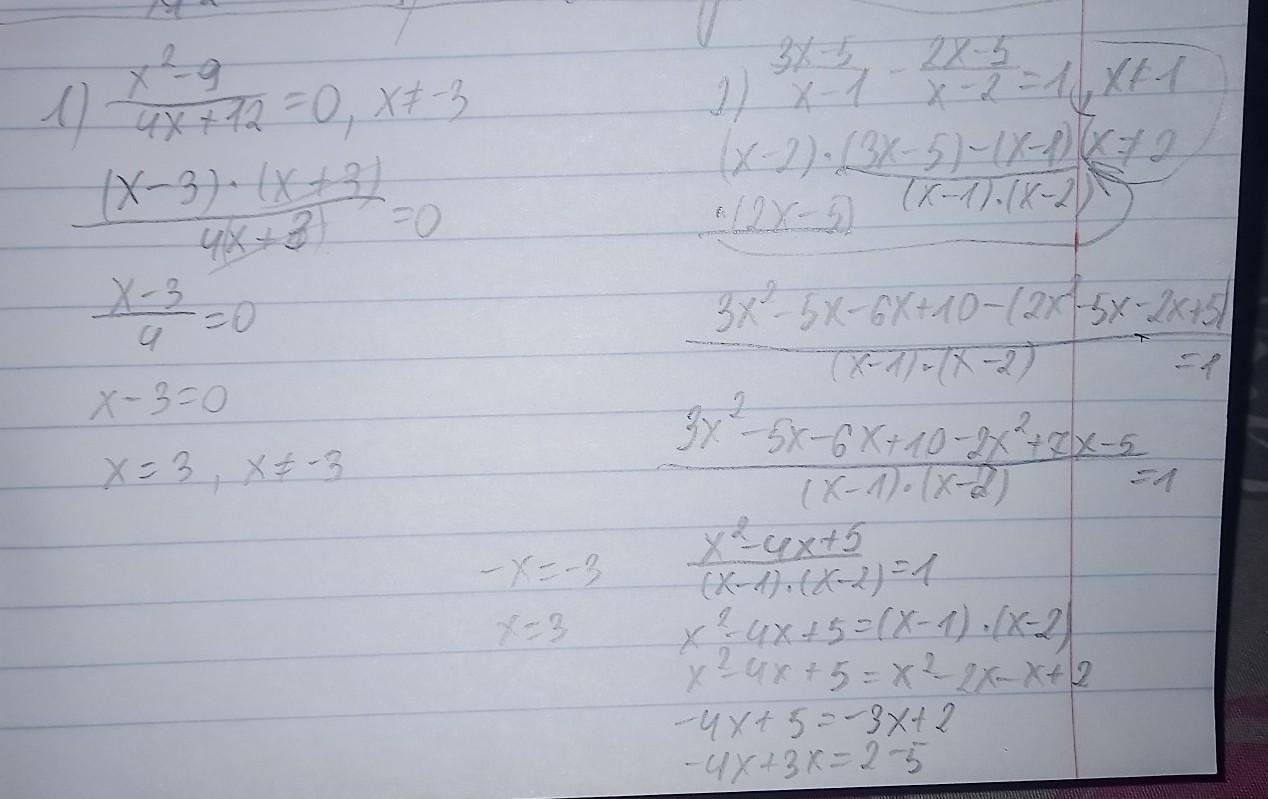 1) \frac{x^2-9}{4x+12}=0, x≠-3
\frac{(x-3)·(x+3)}{4(x+3)}=0
\frac{x-3}{4}=0
x-3=0
x=3, x≠-3
2) \frac{3x-5}{x-1}-\frac{2x-5}{x-2}=1, x≠1
x≠2
\frac{(x-2)·(3x-5)-(x-1)·(2x-5)}{(x-1)·(x-2)}
\frac{3x^2-5x-6x+10-(2x^2-5x-2x+5)}{(x-1)·(x-2)}=1
\frac{3x^2-5x-6x+10-2x^2+7x-5}{(x-1)·(x-2)}=1
\frac{x^2-4x+5}{(x-1)·(x-2)}=1
x^2-4x+5=(x-1)·(x-2)
x^2-4x+5=x^2-2x-x+2
-4x+5=-3x+2
-4x+3x=2-5
-x=-3
x=3